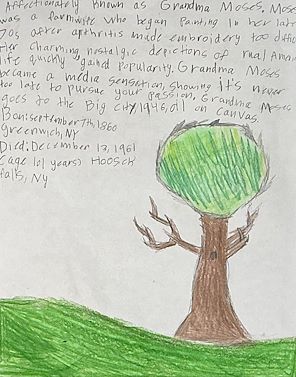 Affectionately known as Grandma Moses, Moses
was a farmwife who began Painting in her late
70s after arthritis made embroidery too difficu
Her charming, nostalgic depictions of rual America
life quickly gained Popularity. Grandma Moses
became a media sensation, showing it's never
too late to pursue your passion, Grandma Moses
goes to the Big City, 1946, oil on canvas.
Born: September 7th, 1860
Greenwich, NY
Died: December 13, 1961
(age 101 years) Hoosick
falls, NY